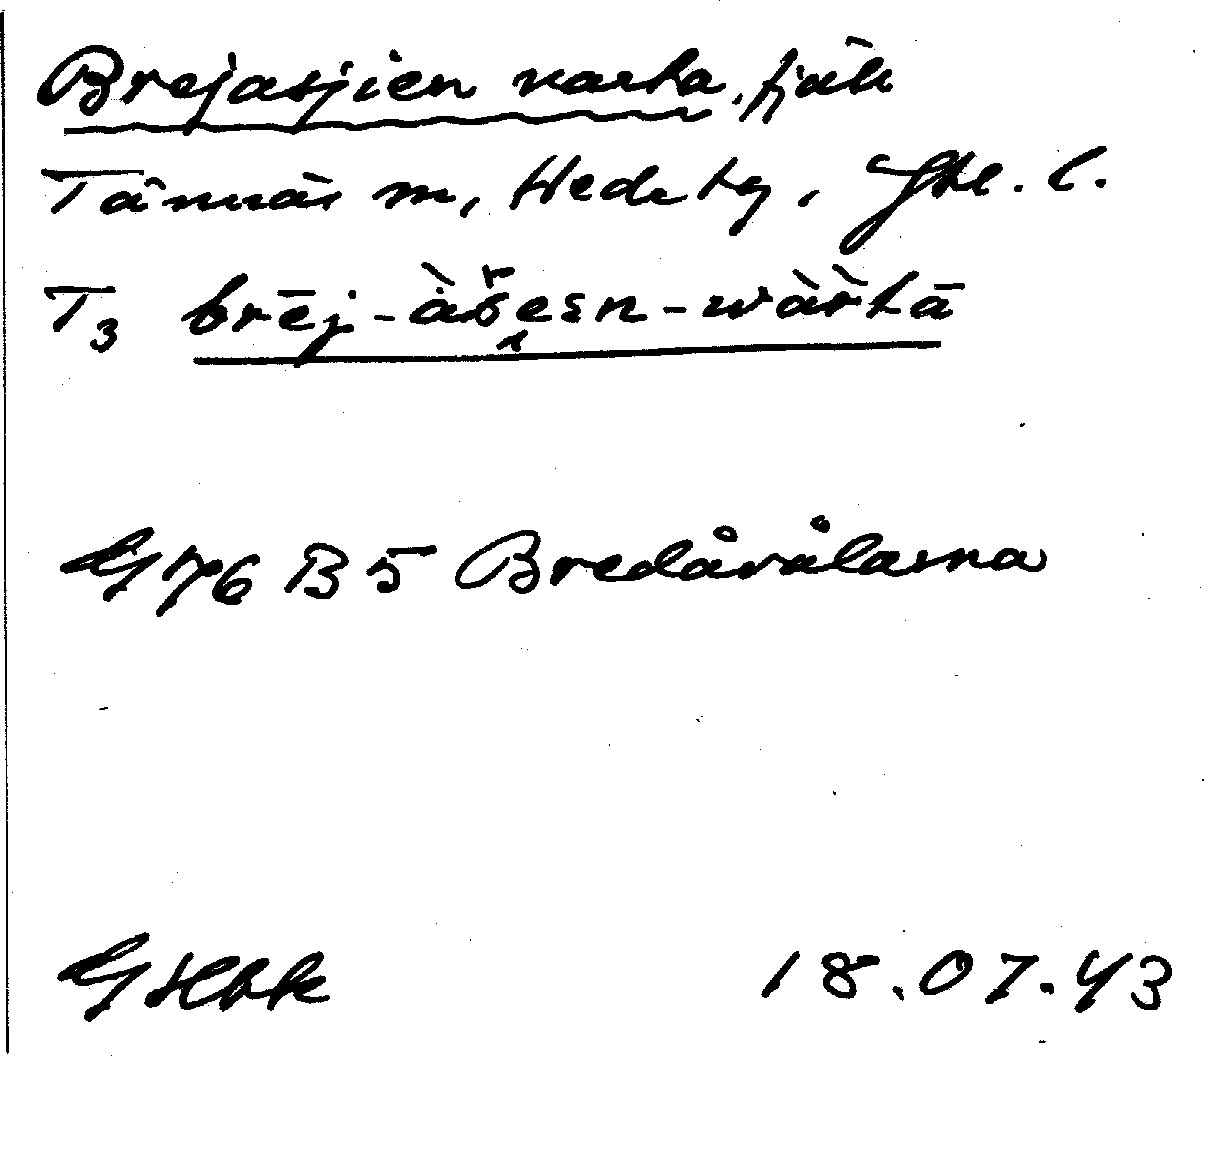 Brejasjien varta, fjäll
Tännäs sn, Hede tg, Jtl. l.
T3 brēj-àšesn-wàrtā
G 76 B 5 Bredåvålarna
G Hbk 18.07.43